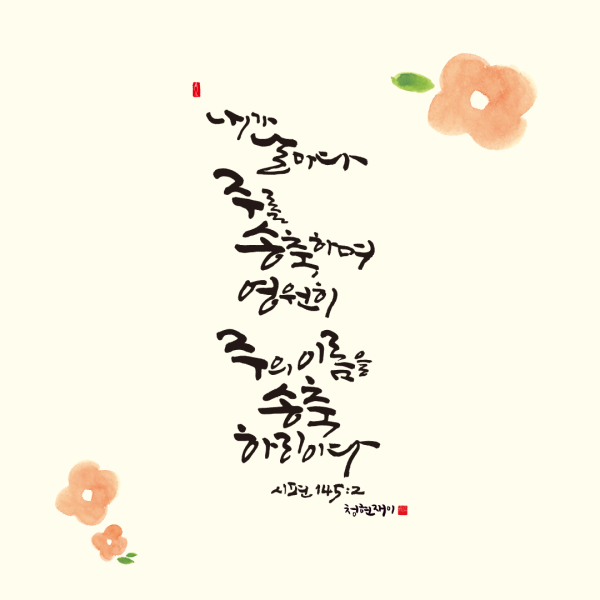 내가
날마다
주를
송축하며
영원히
주의 이름을
송축
하리이다
시편 145:2
청현재이